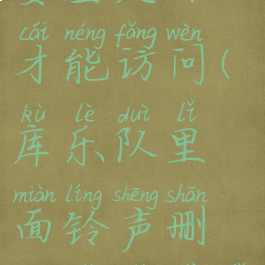 cái néng fǎng wèn
才能访问(
kù lè duì lǐ
库乐队里
miàn líng shēng shān
面铃声删